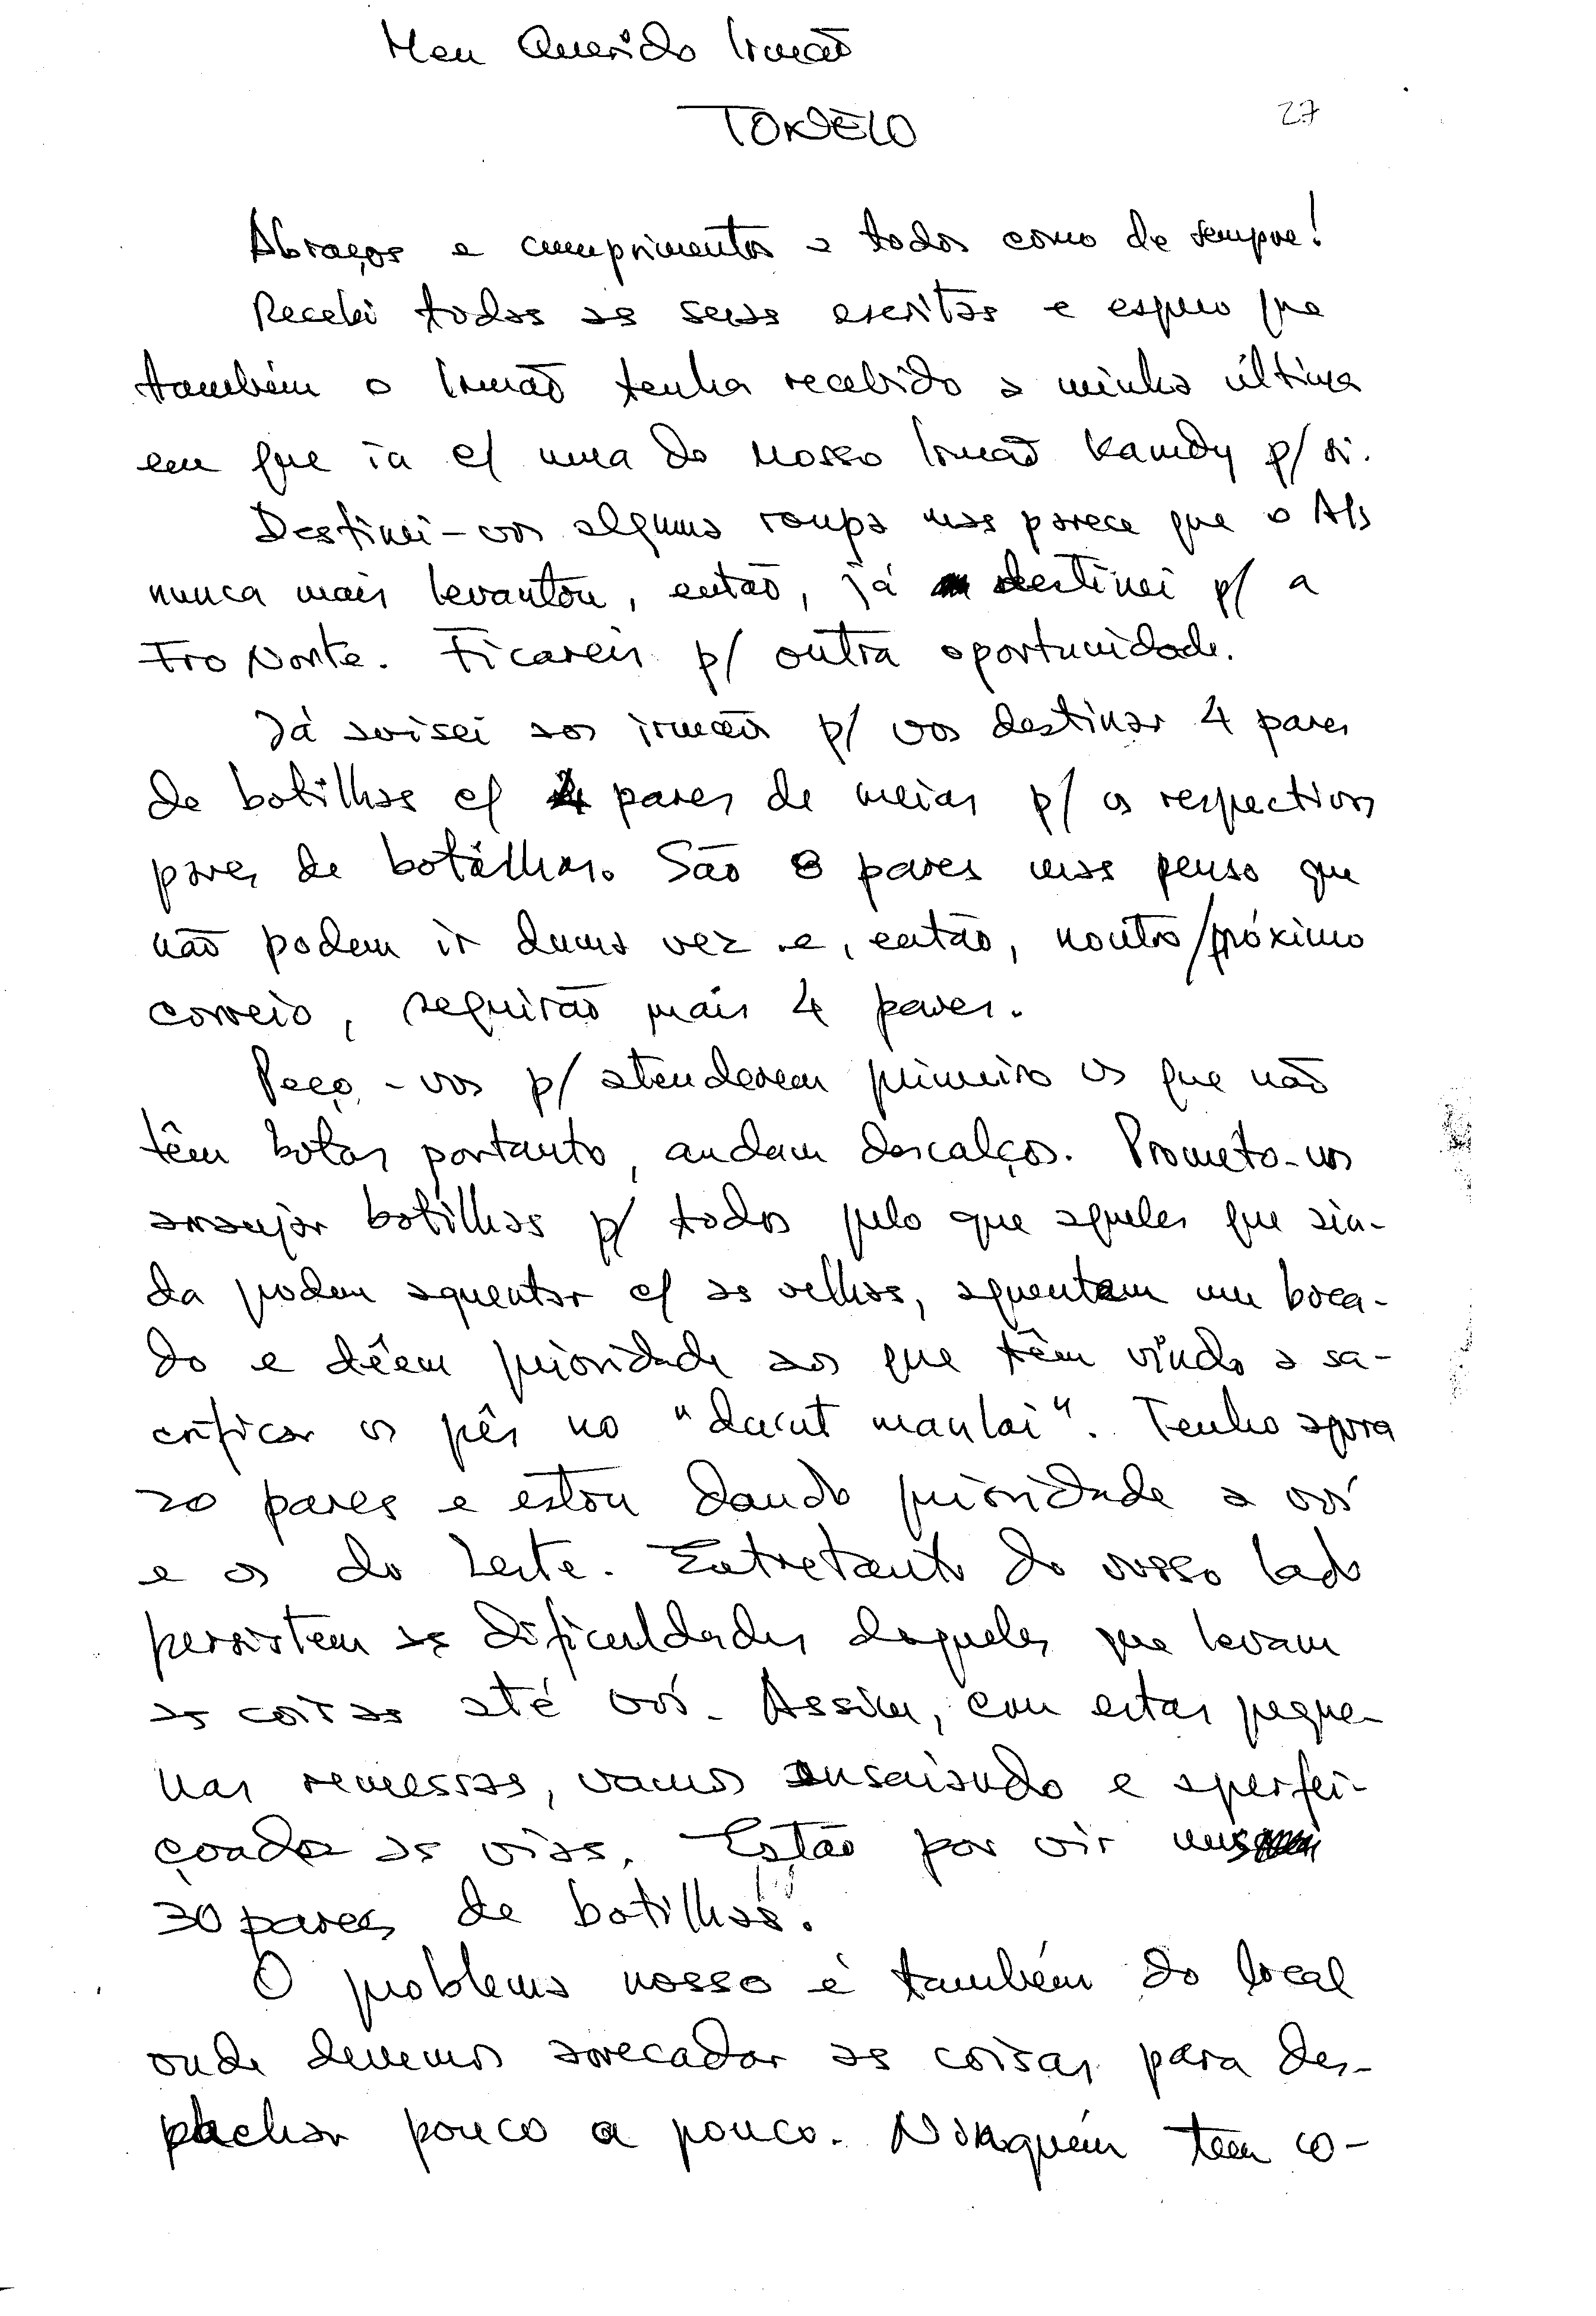 Meu Querido Irmão
TONELO
27
Abraços e cumprimentos a todos como de sempre!
Recebi todas as suas escritas e espero que
também o Irmão tenha recebido a minha última
em que ia c/ uma do nosso Irmão Kamdy p/ si.
Destinei-vos alguma roupa mas parece que o
nunca mais levantou, então, já destinei p/ a
Fro Norte. Ficareis p/ outra oportunidade.
Já avisei aos irmãos p/ vos destinar 4 pares
de botilhas c/ 4 pares de meias p/ os respectivos
pares de botilhas. São 8 pares mas penso que
não podem ir duma vez e, então, noutro/próximo
correio, seguirão mais 4 pares.
Peço-vos p/ atenderem primeiro os que não
têm botas portanto, andam descalços. Prometo-vos
arranjar botilhas p/ todos pelo que aqueles que ain-
da podem aguentar c/ as velhas, aguentem um boca-
do e dêem prioridade aos que têm vindo a sa-
crificar os pés no "duut manlai". Tenho agora
20 pares e estou dando prioridade a vós
e os do Leste. Entretanto do vosso lado
persistem as dificuldades daqueles que levam
as coisas até vós. Assim, com estas peque-
nas remessas, vamos ensaiando e aperfei-
çoando as vias. Estão por vir uns
30 pares de botilhas.
O problema nosso é também do local
onde devemos arrecadar as coisas para des-
pachar pouco a pouco. Ninguém tem co-